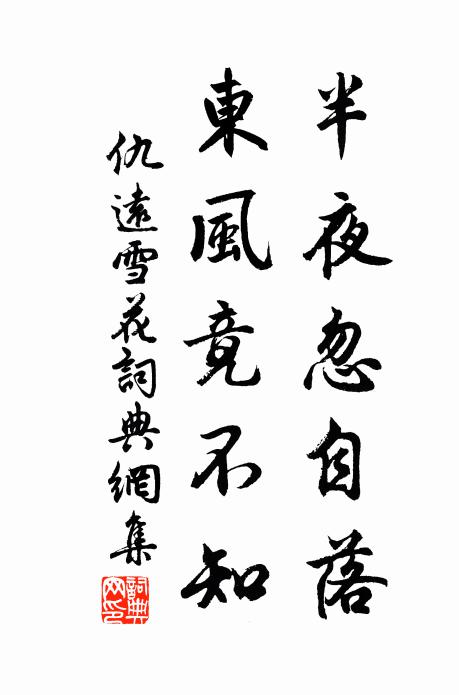 半夜忽自落
東風竟不知
仇遠雪花詞典網集
詞典網印